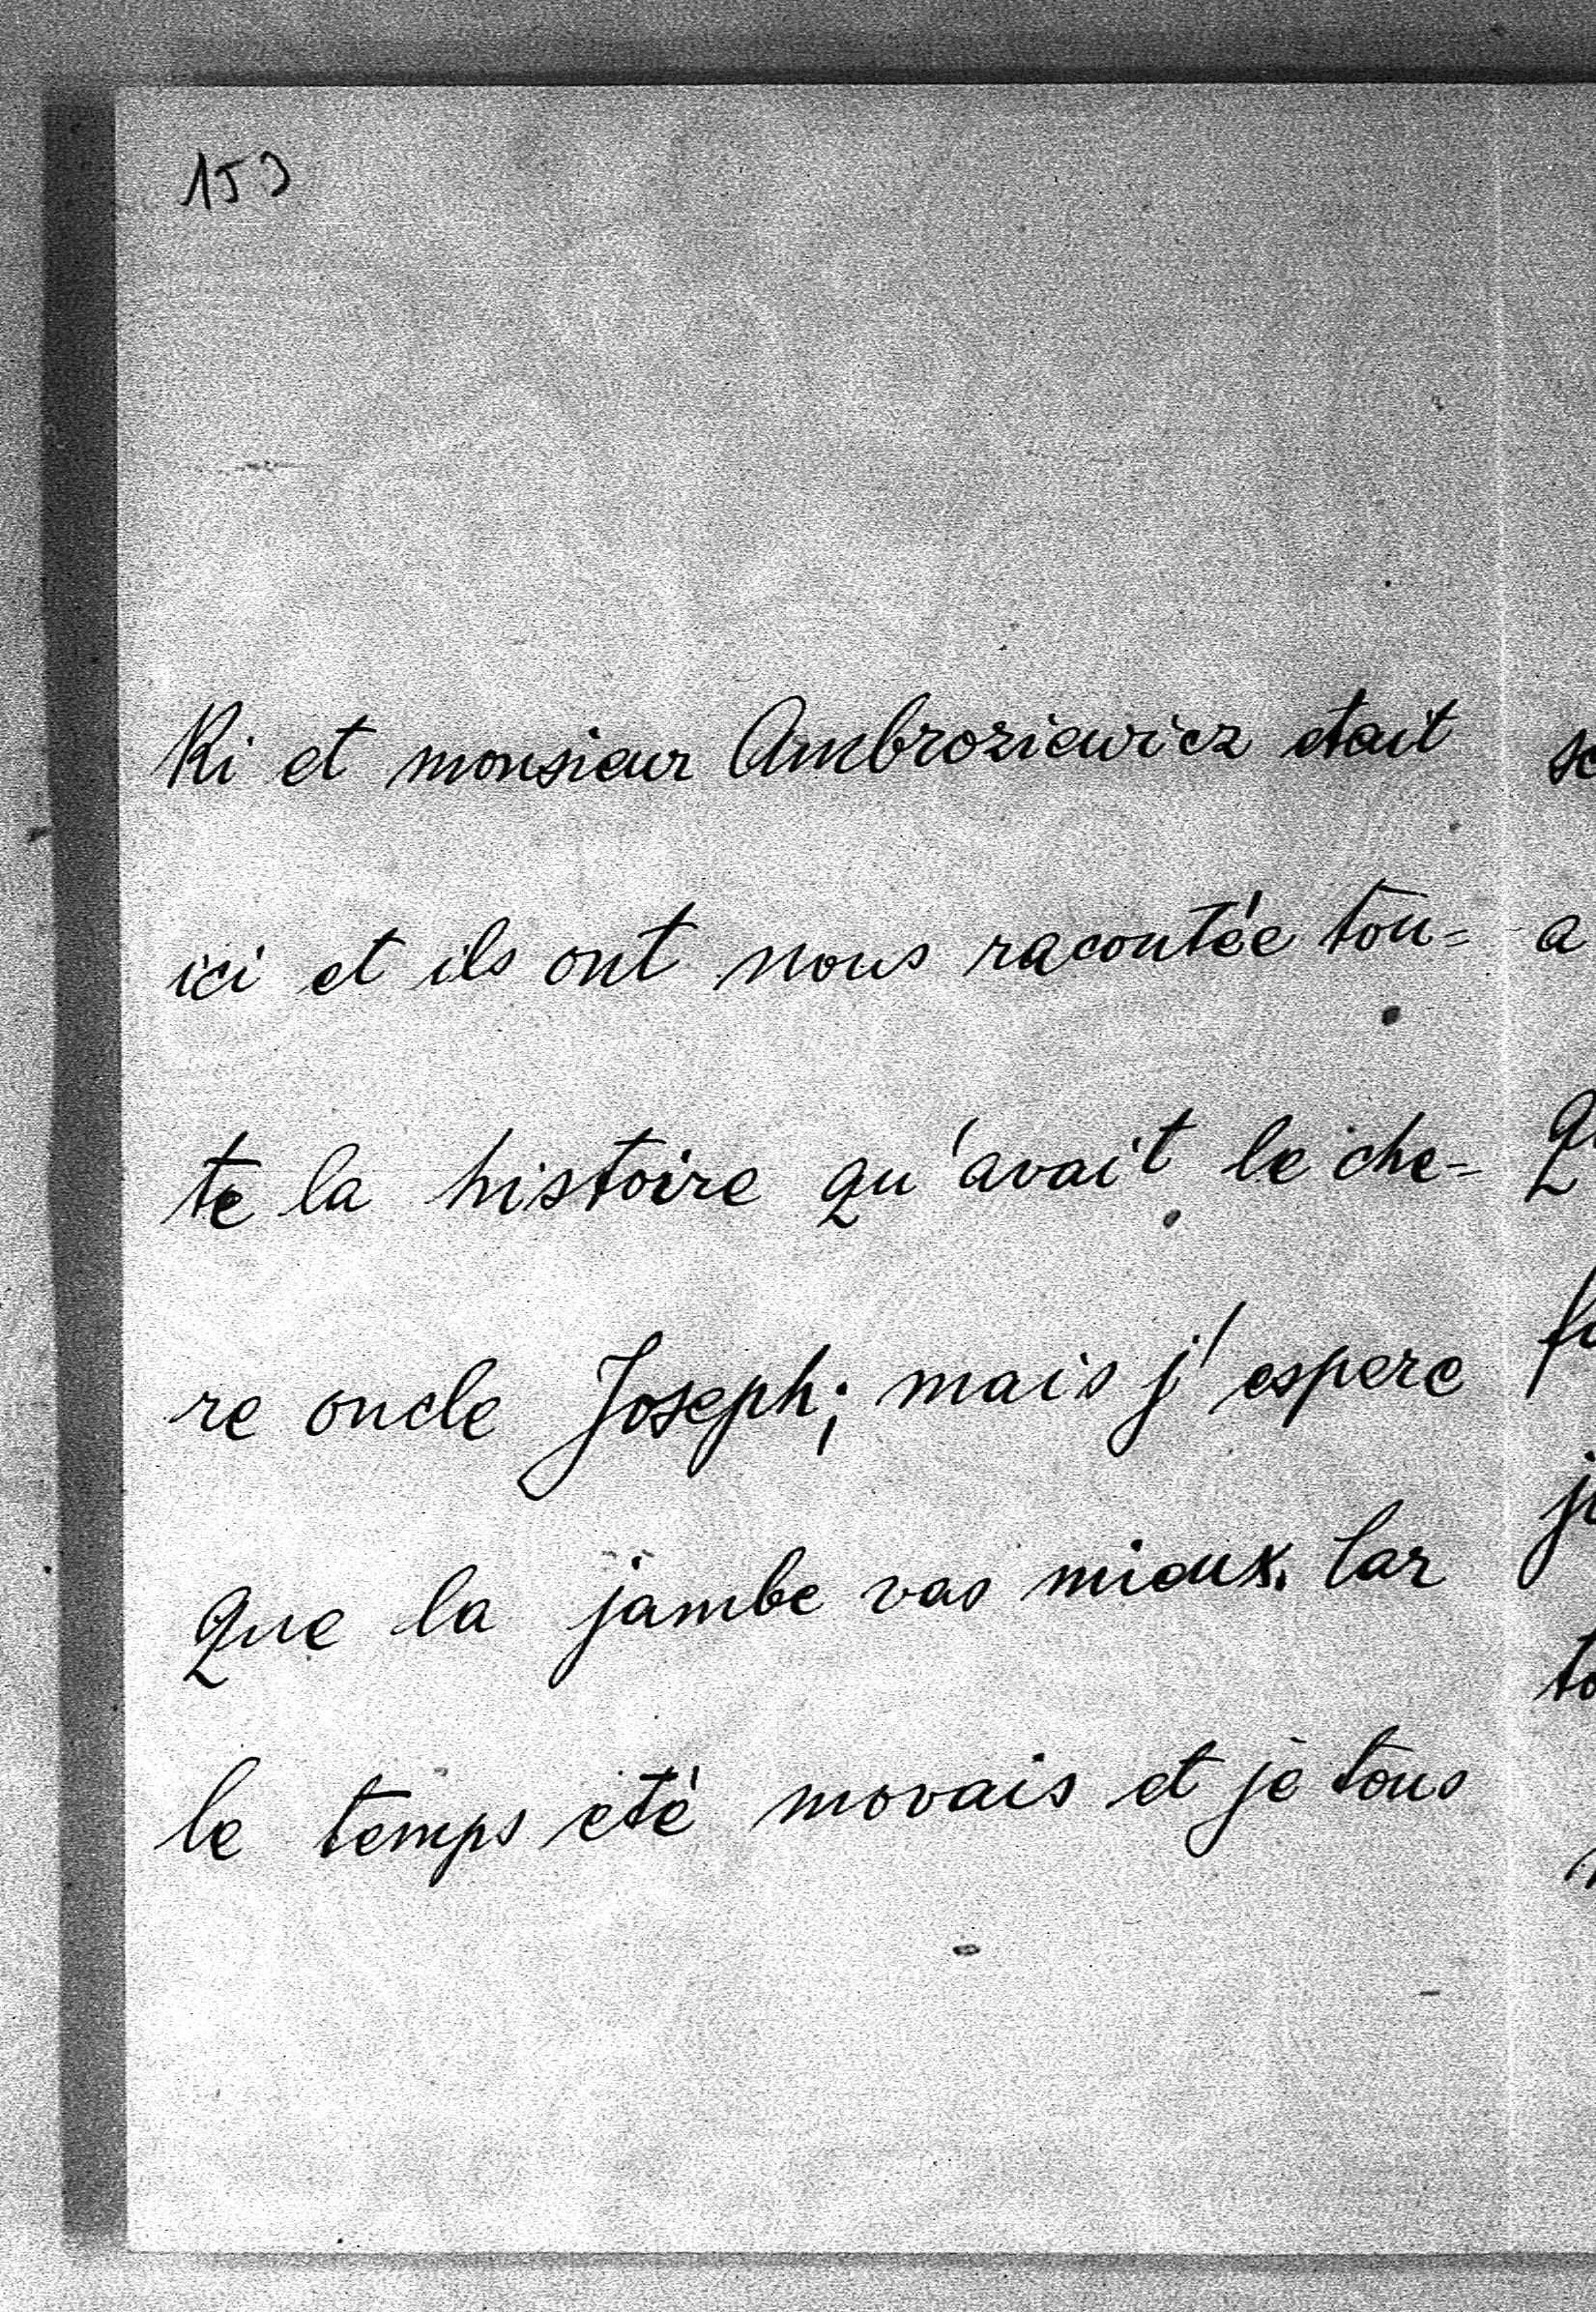 153
ki et monsieur Ambroziewicz etait
ici et ils ont nous racontée tou=
te la histoire qu'avait le che=
re oncle Joseph; mais j'espere
que la jambe vas mieux. Car
le temps eté movais et je tous
a